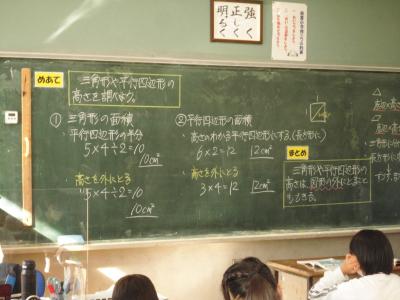 強く
正しく
明るく
めあて
三角形や平行四辺形の
高さを調べよう。
① 三角形の面積
・平行四辺形の半分
5×4÷2=10
10cm²
・高さを外にとる
5×4÷2=10
10cm²
②平行四辺形の面積
・高さのわかる平行四辺形にする。(長方形に)
6×2=12 12cm²
・高さを外にとる
3×4=12 12cm²
まとめ
三角形や平行四辺形の
高さは、図形の外にとることも
できる。